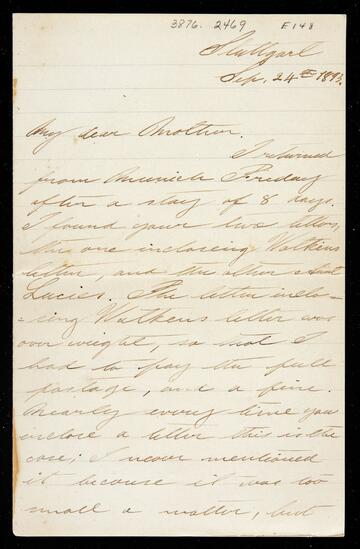 3876. 2469 E148
Stuttgart
Sep. 24th 1893.
My dear Mother.
I returned
from Munich Friday
after a stay of 8 days.
I found your two letters,
the one inclosing Watkins
letter, and the other about
Lucies. The letter inclo-
-sing Watkens letter was
over weight, so that I
had to pay the full
postage, and a fine.
Nearly every time you
inclose a letter this is the
case; I never mentioned
it because it was too
small a matter, but